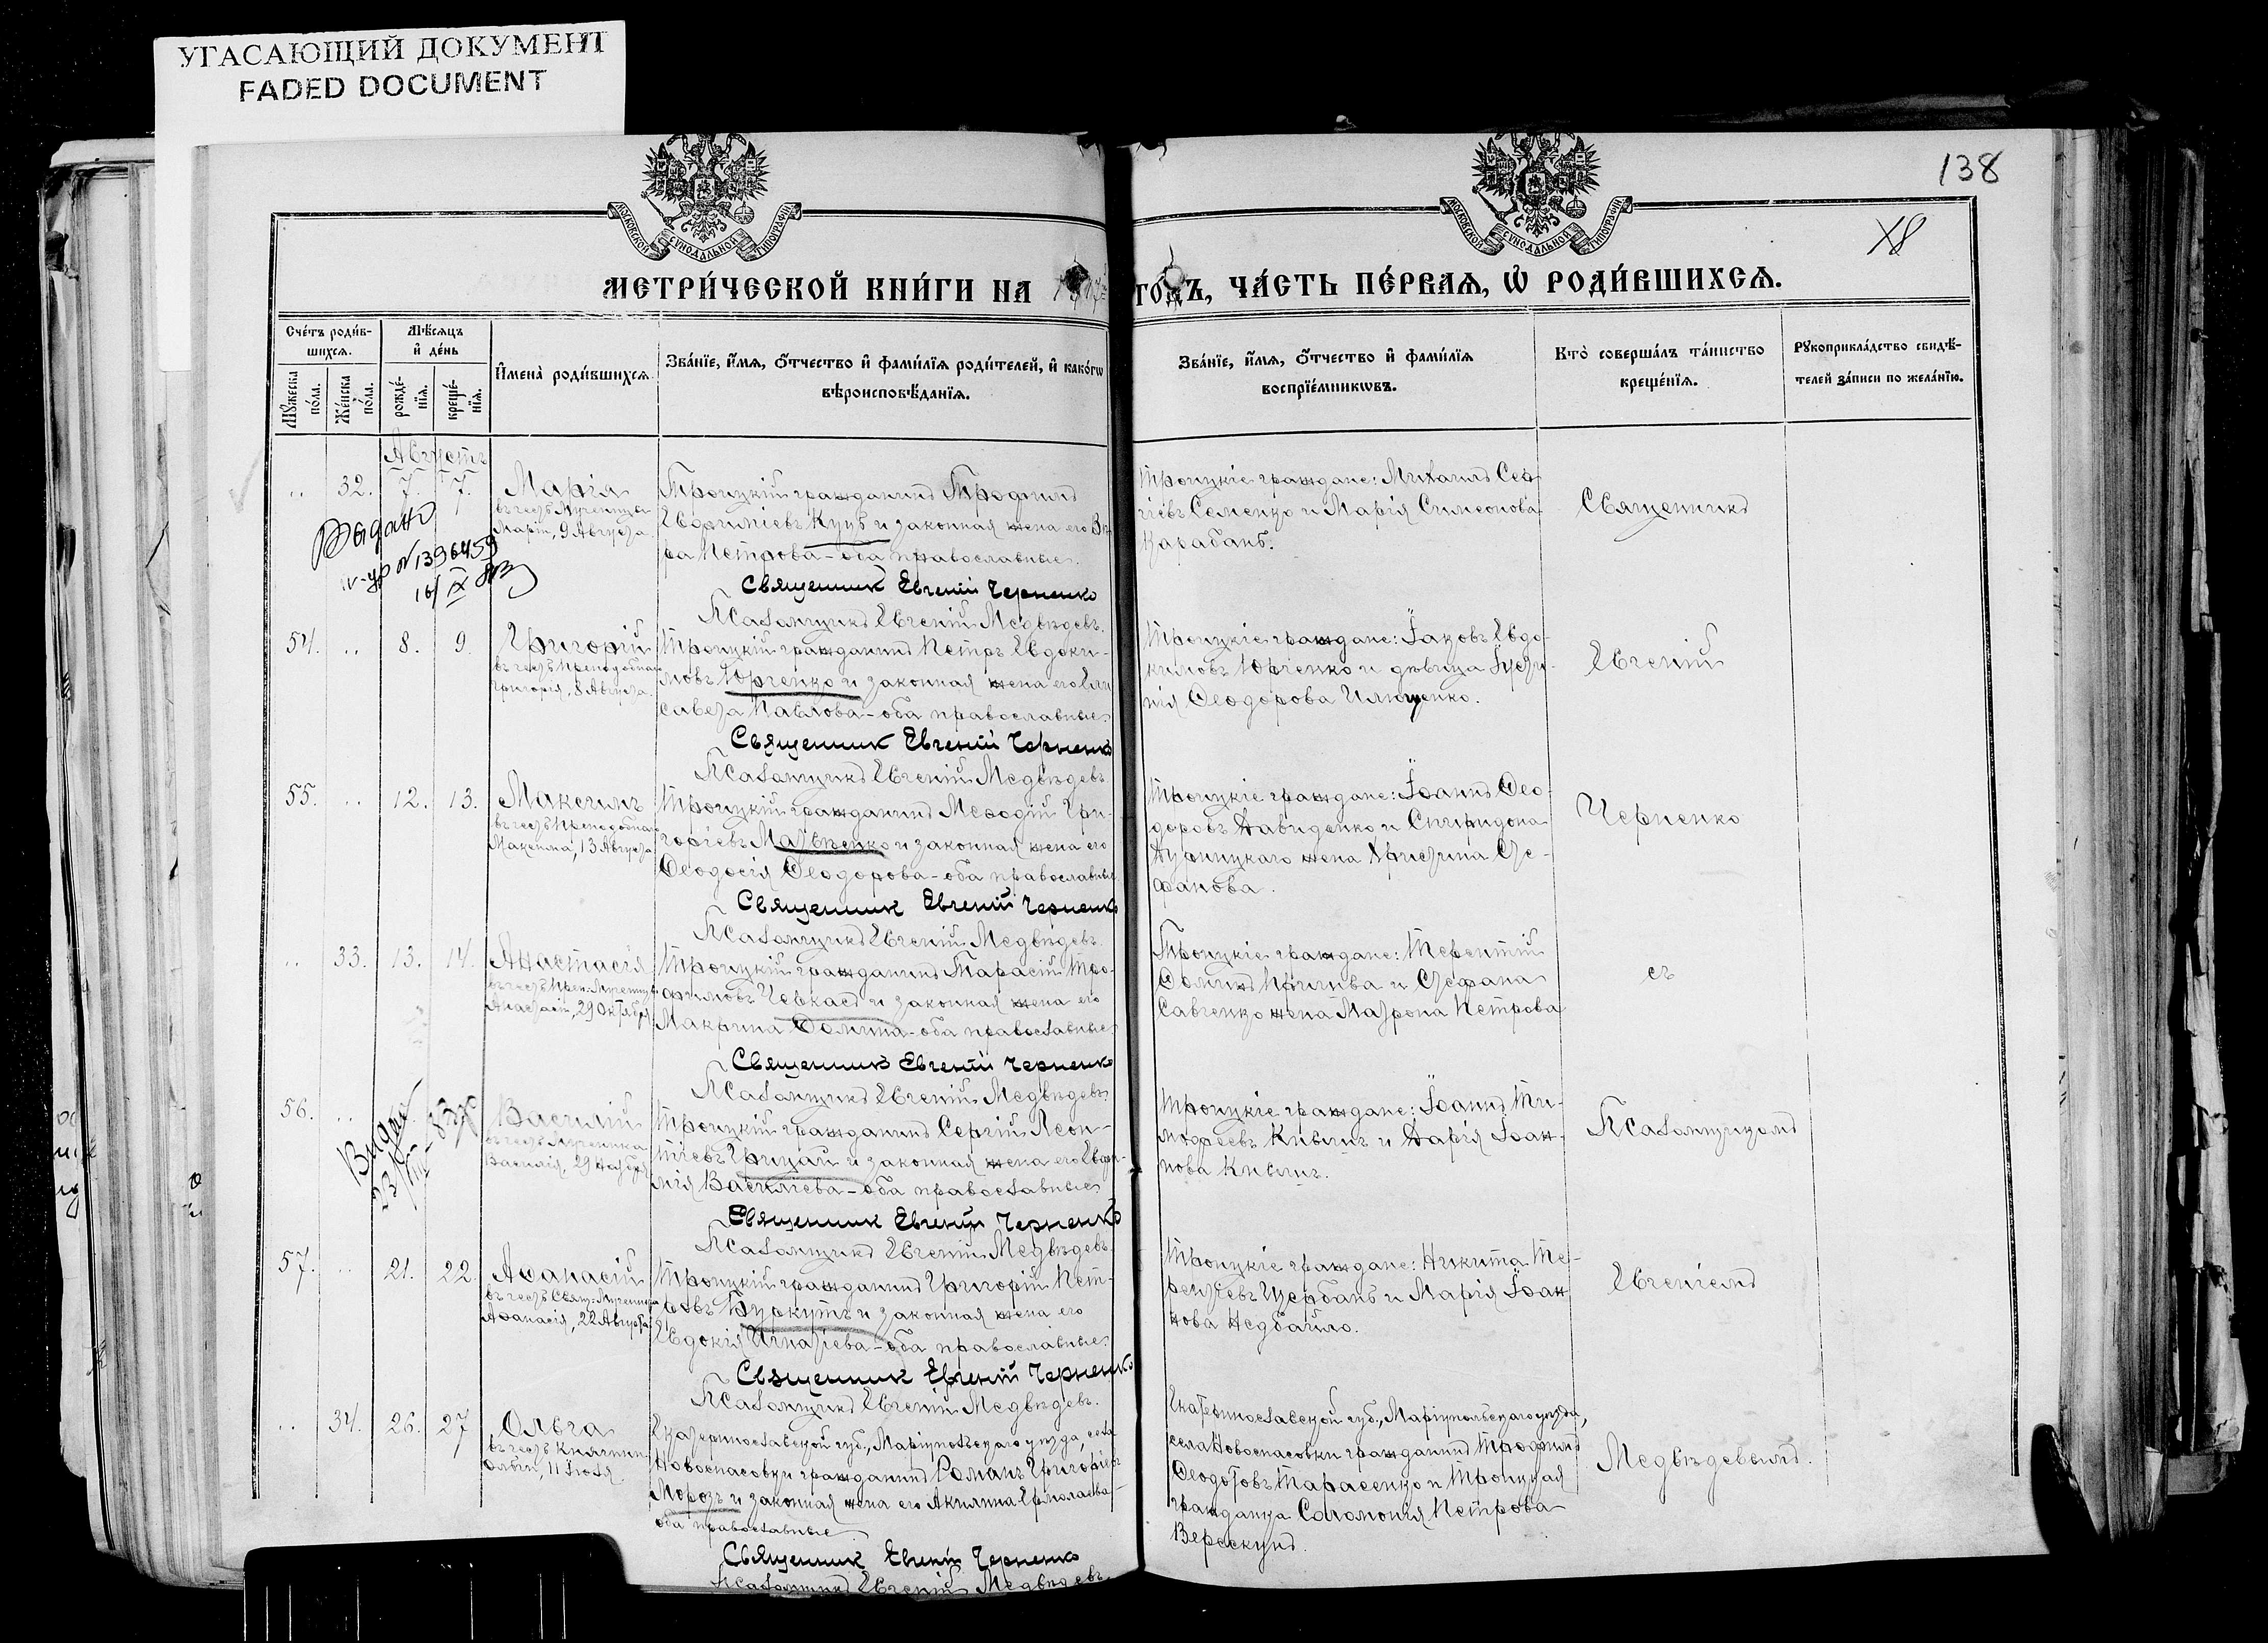 УГАСАЮЩИЙ ДОКУМЕНТ
FADED DOCUMENT
138
МОСКОВСКОЙ СУНОДАЛЬНОЙ ТИПОГРАФІИ
МОСКОВСКОЙ СУНОДАЛЬНОЙ ТИПОГРАФІИ
МЕТРИ́ЧЕСКОЙ КНИ́ГИ НА
ГО́ДЪ, ЧА́СТЬ ПЕ́РВАѦ, Ѡ РОДИ́ВШИХСѦ.
Сче́тъ роди́в-
шихсѧ.
Мѣ́сѧцъ
и де́нь
Мꙋ́жеска по́ла.
Же́нска по́ла.
рожде́-
нїѧ.
креще́-
нїѧ.
Имена̀ роди́вшихсѧ.
Зва́нїе, и́мѧ, о́тчество и фами́лїѧ роди́телей, и како́гѡ
вѣроисповѣ́данїѧ.
Зва́нїе, и́мѧ, о́тчество и фами́лїѧ
воспрїе́мникѡвъ.
Кто̀ соверша́лъ та́инство
креще́нїѧ.
Рꙋкоприкла́дство свидѣ́-
телей за́писи по жела́нїю.
Августъ
32. 7. 7.
Марія
въ честь Мученицы
Маріи, 9 Августа.
Троицкій гражданинъ Трофимъ
Евфиміевъ Куцъ и законная жена его Вѣ-
ра Петрова - оба православные.
Священник Евгений Черненко
Псаломщикъ Евгеній Медвѣдевъ.
Троицкіе граждане: Михаилъ Сер-
гіевъ Семенко и Марія Симеонова
Карабанъ.
Священникъ
Выдано
№ 1396459
54. .. 8. 9.
Григорій
въ честь Преподобнаго
Григорія, 8 Августа.
Троицкій гражданинъ Петръ Евдоки-
мовъ Юрченко и законная жена его Ели-
савета Павлова - оба православные.
Священник Евгений Черненко
Псаломщикъ Евгеній Медвѣдевъ.
Троицкіе граждане: Іаковъ Евдо-
кимовъ Юрченко и дѣвица
Ѳеодорова Илющенко.
Евгеній
55. .. 12. 13.
Максимъ
въ честь Преподобнаго
Максима, 13 Августа
Троицкій гражданинъ Меѳодій Гри-
горіевъ Матвѣенко и законная жена его
Ѳеодосія Ѳеодорова - оба православные
Священник Евгений Черненко
Псаломщикъ Евгеній Медвѣдевъ.
Троицкіе граждане: Іоаннъ Ѳео-
доровъ Давиденко и Спиридона
жена Христина Сте-
фанова.
Черненко
.. 33. 13. 14.
Анастасія
въ честь Мученицы
Анастасіи, 29 Октября
Троицкій гражданинъ Тарасій Тро-
фимовъ Черкасъ и законная жена его
Макрина Ѳомина - оба православные
Священникъ Евгений Черненко
Псаломщикъ Евгеній Медвѣдевъ
Троицкіе граждане: Терентій
Ѳоминъ и Стефана
Савченко жена Матрона Петрова
съ
56. ..
Василій
въ честь Мученика
Василія, 29 Ноября
Троицкій гражданинъ Сергій Леон-
тіевъ Грицай и законная жена его Евфи-
мія Василіева - оба православные.
Священник Евгений Черненко
Псаломщикъ Евгеній Медвѣдевъ.
Троицкіе граждане: Іоаннъ Ти-
моѳеевъ и Дарія Іоан-
нова
Псаломщикомъ
57. .. 21. 22.
Аѳанасій
въ честь Свящ. Мученика
Аѳанасія, 22 Августа
Троицкій гражданинъ Григорій Пет-
ровъ Буркутъ и законная жена его
Евдокія Игнатіева - оба православные.
Священник Евгений Черненко
Псаломщикъ Евгеній Медвѣдевъ.
Троицкіе граждане: Никита Те-
рентіевъ Щербанъ и Марія Іоан-
нова Недбайло.
Евгеніемъ
.. 34. 26. 27
Ольга
въ честь Княгини
Ольги, 11 Іюля
Екатеринославской губ., Маріупольскаго уѣзда, села
Новоспасовки гражданинъ Романъ Григоріевъ
Морозъ и законная жена его Акилина Ермолаева -
оба православные.
Священник Евгений Черненко
Псаломщикъ Евгеній Медвѣдевъ.
Екатеринославской губ., Маріупольскаго уѣзда,
села Новоспасовки гражданинъ Трофимъ
Ѳеодотовъ Тарасенко и Троицкая
гражданка Соломонія Петрова
Верескунъ.
Медвѣдевымъ.